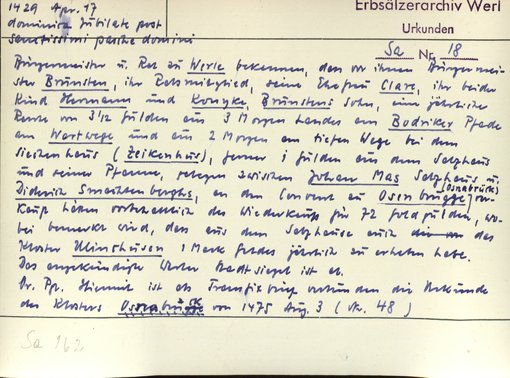 1429 Apr. 17
dominica Jubilate post
sanctissimi pasche domini
Erbsälzerarchiv Werl
Urkunden
Sa Nr. 18
Bürgermeister u. Rat zu Werle bekennen, dass vor ihnen Bürgermei-
ster Brünsten, ihr Ratsmitglied, seine Ehefrau Clare, ihr beider
Kind Hermann und Konyke, Brünstens Sohn, eine jährliche
Rente von 3 1/2 Gulden aus 3 Morgen Landes am Bodriker Pfade
am Wartwege und aus 2 Morgen am tiefen Wege bei dem
Siechenhaus (Zeikenhus), ferner 1 Gulden aus dem Salzhaus
und seiner Pfanne, gelegen zwischen Johan Mas Salzhaus u.
Diderich Smachtenberghs, an den Convent zu Osenbrügge (Osnabrück) ver-
kauft haben vorbehaltlich des Wiederkaufs für 72 Goldgulden, wo-
bei bemerkt wird, dass aus dem Salzhause auch das
Kloster Ulinshusen 1 Mark Geldes jährlich zu erheben habe.
Das angekündigte Werler Stadtsiegel ist ab.
Or. Pg. Hiermit ist als Transfix verbunden die Urkunde
des Klosters Osnabrück von 1475 Aug. 3 (Nr. 48)
Sa 162